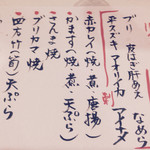 ブリ 皮はぎ肝あえ なめろう
平スズキ アオリイカ アイナメ 刺
赤カレイ(焼・煮・唐揚)
かます(焼・煮・天ぷら)
さんま焼
ブリカマ焼
四方竹(筍)天ぷら